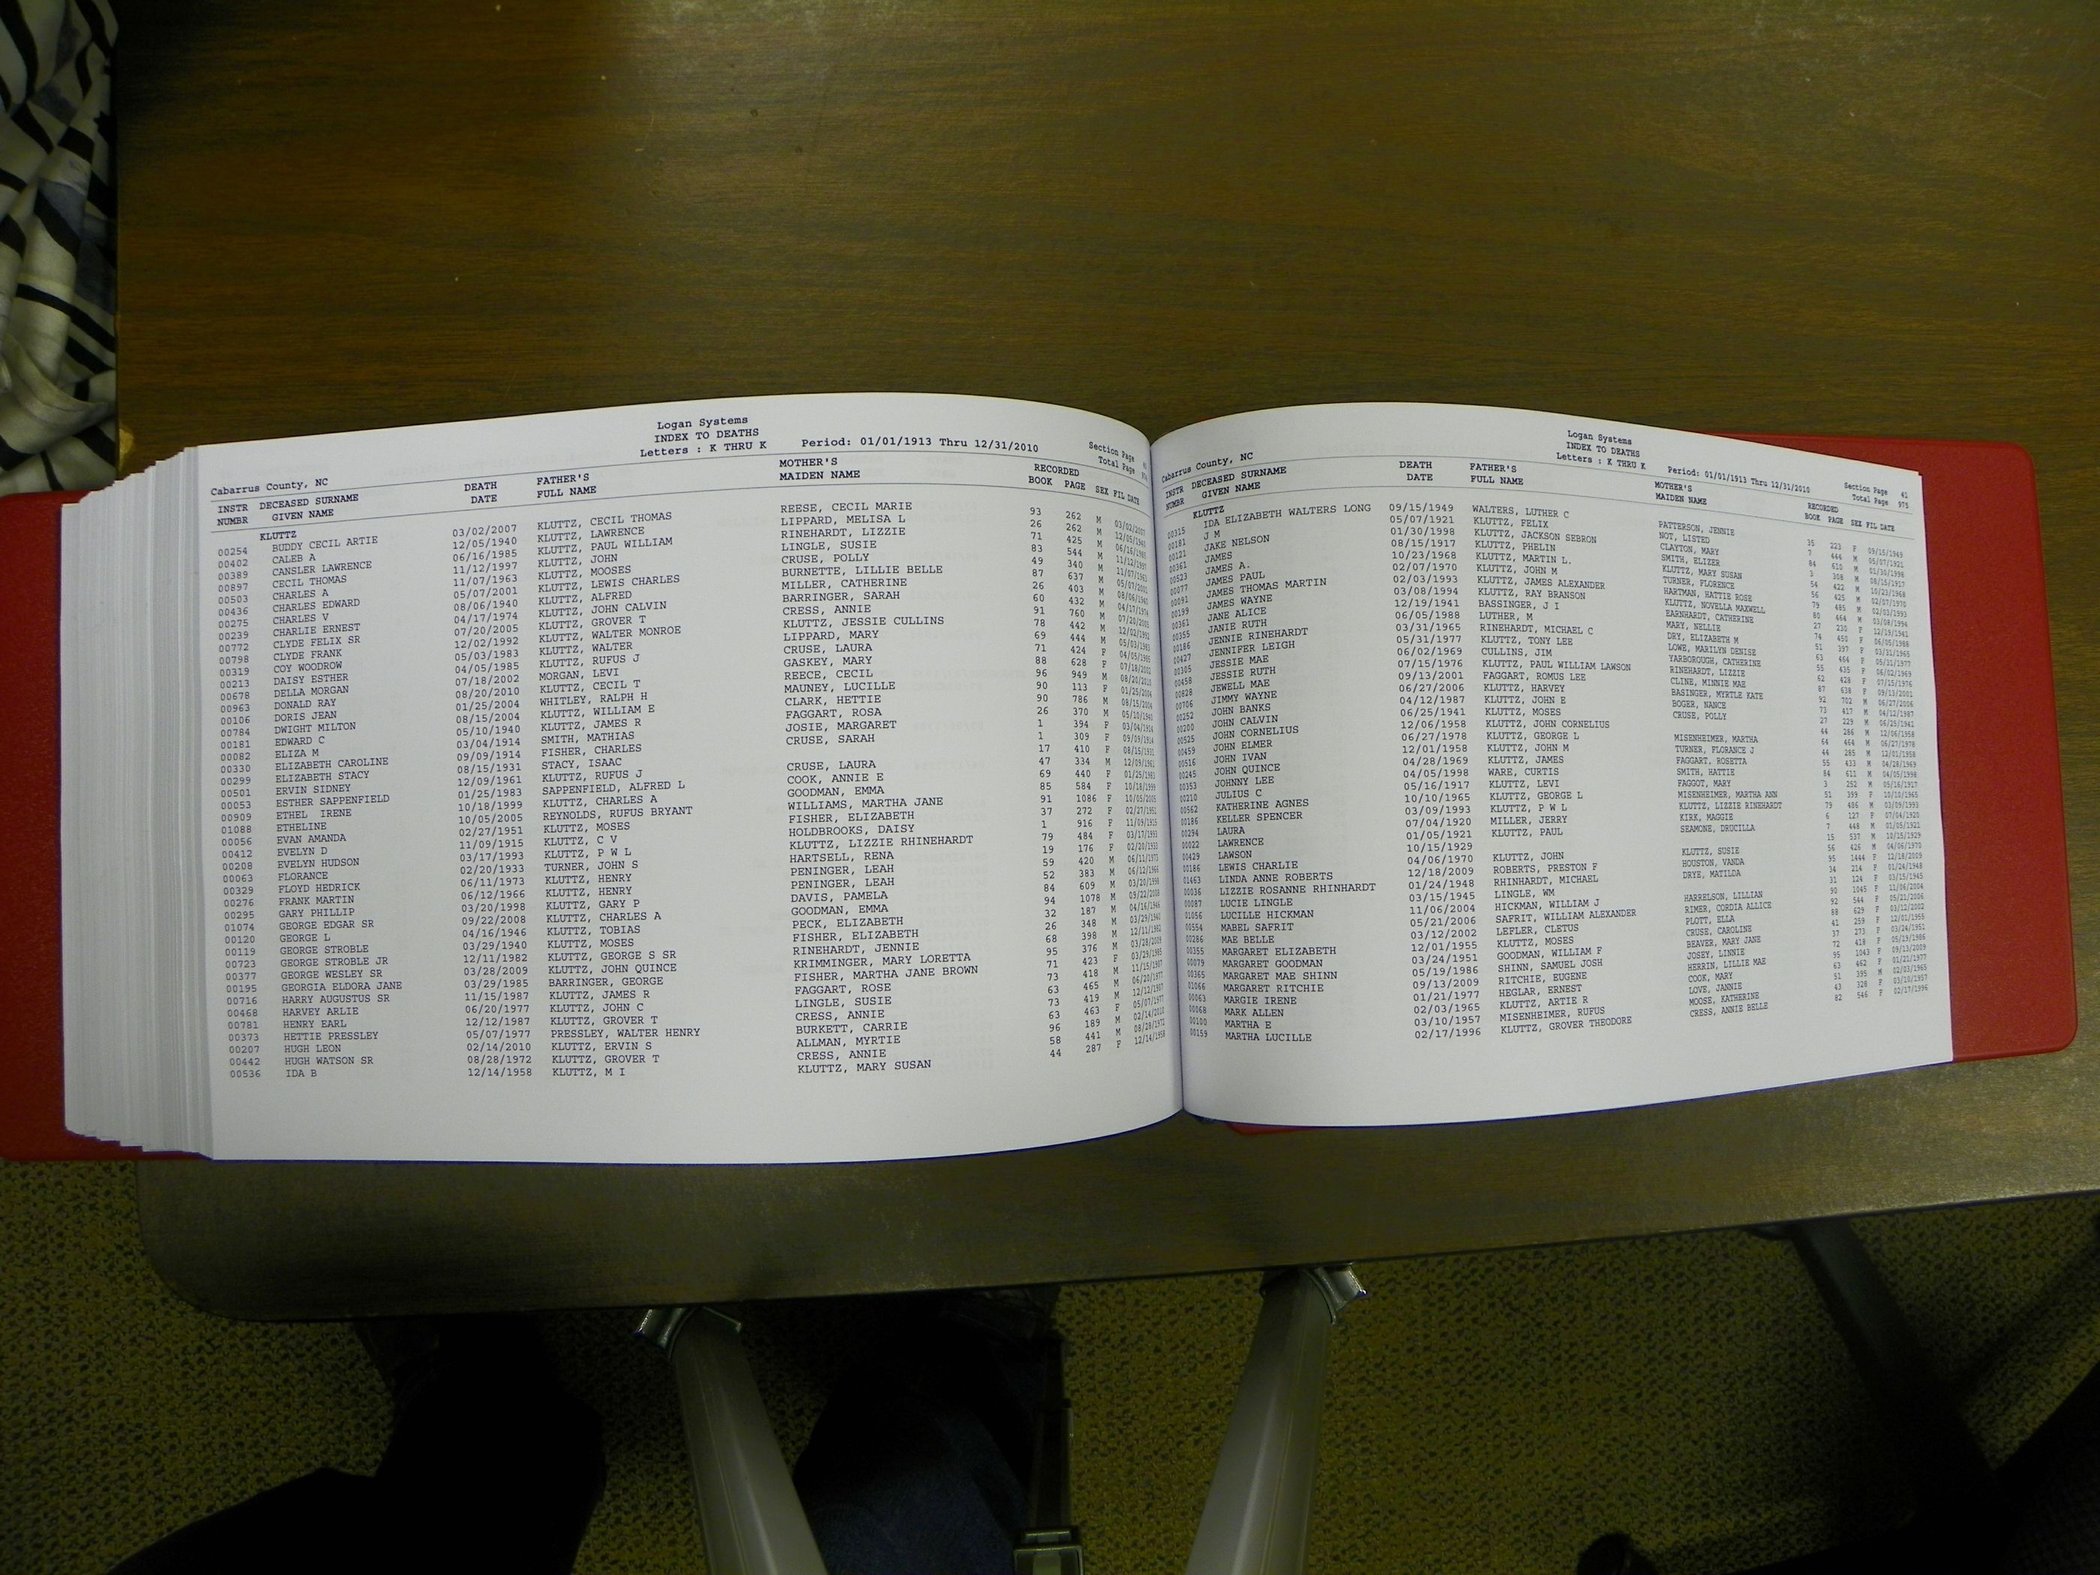 Logan Systems
INDEX TO DEATHS
Letters : K THRU K Period: 01/01/1913 Thru 12/31/2010
Section Page
Total Page
Cabarrus County, NC
INSTR DECEASED SURNAME DEATH FATHER'S MOTHER'S RECORDED
NUMBR GIVEN NAME DATE FULL NAME MAIDEN NAME BOOK PAGE SEX FIL DATE
KLUTTZ
00254 BUDDY CECIL ARTIE 03/02/2007 KLUTTZ, CECIL THOMAS REESE, CECIL MARIE 93 262 M 03/02/2007
00402 CALEB A 12/05/1940 KLUTTZ, LAWRENCE LIPPARD, MELISA L 26 262 M 12/05/1940
00389 CANSLER LAWRENCE 06/16/1985 KLUTTZ, PAUL WILLIAM RINEHARDT, LIZZIE 71 425 M 06/16/1985
00897 CECIL THOMAS 11/12/1997 KLUTTZ, JOHN LINGLE, SUSIE 83 544 M 11/12/1997
00503 CHARLES A 11/07/1963 KLUTTZ, MOOSES CRUSE, POLLY 49 340 M 11/07/1963
00436 CHARLES EDWARD 05/07/2001 KLUTTZ, LEWIS CHARLES BURNETTE, LILLIE BELLE 87 637 M 05/07/2001
00275 CHARLES V 08/06/1940 KLUTTZ, ALFRED MILLER, CATHERINE 26 403 M 08/06/1940
00239 CHARLIE ERNEST 04/17/1974 KLUTTZ, JOHN CALVIN BARRINGER, SARAH 60 432 M 04/17/1974
00772 CLYDE FELIX SR 07/20/2005 KLUTTZ, GROVER T CRESS, ANNIE 91 760 M 07/20/2005
00798 CLYDE FRANK 12/02/1992 KLUTTZ, WALTER MONROE KLUTTZ, JESSIE CULLINS 78 442 M 12/02/1992
00319 COY WOODROW 05/03/1983 KLUTTZ, WALTER LIPPARD, MARY 69 444 M 05/03/1983
00213 DAISY ESTHER 04/05/1985 KLUTTZ, RUFUS J CRUSE, LAURA 71 424 F 04/05/1985
00678 DELLA MORGAN 07/18/2002 MORGAN, LEVI GASKEY, MARY 88 628 F 07/18/2002
00963 DONALD RAY 08/20/2010 KLUTTZ, CECIL T REECE, CECIL 96 949 M 08/20/2010
00106 DORIS JEAN 01/25/2004 WHITLEY, RALPH H MAUNEY, LUCILLE 90 113 F 01/25/2004
00784 DWIGHT MILTON 08/15/2004 KLUTTZ, WILLIAM E CLARK, HETTIE 90 786 M 08/15/2004
00181 EDWARD C 05/10/1940 KLUTTZ, JAMES R FAGGART, ROSA 26 370 M 05/10/1940
00082 ELIZA M 03/04/1914 SMITH, MATHIAS JOSIE, MARGARET 1 394 F 03/04/1914
00330 ELIZABETH CAROLINE 09/09/1914 FISHER, CHARLES CRUSE, SARAH 1 309 F 09/09/1914
00299 ELIZABETH STACY 08/15/1931 STACY, ISAAC 17 410 F 08/15/1931
00501 ERVIN SIDNEY 12/09/1961 KLUTTZ, RUFUS J CRUSE, LAURA 47 334 M 12/09/1961
00053 ESTHER SAPPENFIELD 01/25/1983 SAPPENFIELD, ALFRED L COOK, ANNIE E 69 440 F 01/25/1983
00909 ETHEL IRENE 10/18/1999 KLUTTZ, CHARLES A GOODMAN, EMMA 85 584 F 10/18/1999
01088 ETHELINE 10/05/2005 REYNOLDS, RUFUS BRYANT WILLIAMS, MARTHA JANE 91 1086 F 10/05/2005
00056 EVAN AMANDA 02/27/1951 KLUTTZ, MOSES FISHER, ELIZABETH 37 272 F 02/27/1951
00412 EVELYN D 11/09/1915 KLUTTZ, C V HOLDBROOKS, DAISY 1 916 F 11/09/1915
00208 EVELYN HUDSON 03/17/1993 KLUTTZ, P W L KLUTTZ, LIZZIE RHINEHARDT 79 484 F 03/17/1993
00063 FLORANCE 02/20/1933 TURNER, JOHN S HARTSELL, RENA 19 176 F 02/20/1933
00329 FLOYD HEDRICK 06/11/1973 KLUTTZ, HENRY PENINGER, LEAH 59 420 M 06/11/1973
00276 FRANK MARTIN 06/12/1966 KLUTTZ, HENRY PENINGER, LEAH 52 383 M 06/12/1966
00295 GARY PHILLIP 03/20/1998 KLUTTZ, GARY P DAVIS, PAMELA 84 609 M 03/20/1998
01074 GEORGE EDGAR SR 09/22/2008 KLUTTZ, CHARLES A GOODMAN, EMMA 94 1078 M 09/22/2008
00120 GEORGE L 04/16/1946 KLUTTZ, TOBIAS PECK, ELIZABETH 32 187 M 04/16/1946
00119 GEORGE STROBLE 03/29/1940 KLUTTZ, MOSES FISHER, ELIZABETH 26 348 M 03/29/1940
00723 GEORGE STROBLE JR 12/11/1982 KLUTTZ, GEORGE S SR RINEHARDT, JENNIE 68 398 M 12/11/1982
00377 GEORGE WESLEY SR 03/28/2009 KLUTTZ, JOHN QUINCE KRIMMINGER, MARY LORETTA 95 376 M 03/28/2009
00195 GEORGIA ELDORA JANE 03/29/1985 BARRINGER, GEORGE FISHER, MARTHA JANE BROWN 71 423 F 03/29/1985
00716 HARRY AUGUSTUS SR 11/15/1987 KLUTTZ, JAMES R FAGGART, ROSE 73 418 M 11/15/1987
00468 HARVEY ARLIE 06/20/1977 KLUTTZ, JOHN C LINGLE, SUSIE 63 465 M 06/20/1977
00781 HENRY EARL 12/12/1987 KLUTTZ, GROVER T CRESS, ANNIE 73 419 M 12/12/1987
00373 HETTIE PRESSLEY 05/07/1977 PRESSLEY, WALTER HENRY BURKETT, CARRIE 63 463 F 05/07/1977
00207 HUGH LEON 02/14/2010 KLUTTZ, ERVIN S ALLMAN, MYRTIE 96 189 M 02/14/2010
00442 HUGH WATSON SR 08/28/1972 KLUTTZ, GROVER T CRESS, ANNIE 58 441 M 08/28/1972
00536 IDA B 12/14/1958 KLUTTZ, M I KLUTTZ, MARY SUSAN 44 287 F 12/14/1958
Logan Systems
INDEX TO DEATHS
Letters : K THRU K Period: 01/01/1913 Thru 12/31/2010
Section Page 41
Total Page 975
Cabarrus County, NC
INSTR DECEASED SURNAME DEATH FATHER'S MOTHER'S RECORDED
NUMBR GIVEN NAME DATE FULL NAME MAIDEN NAME BOOK PAGE SEX FIL DATE
KLUTTZ
00315 IDA ELIZABETH WALTERS LONG 09/15/1949 WALTERS, LUTHER C PATTERSON, JENNIE 35 223 F 09/15/1949
00181 J M 05/07/1921 KLUTTZ, FELIX NOT, LISTED 7 444 M 05/07/1921
00121 JAKE NELSON 01/30/1998 KLUTTZ, JACKSON SEBRON CLAYTON, MARY 84 610 M 01/30/1998
00361 JAMES 08/15/1917 KLUTTZ, PHELIN SMITH, ELIZER 3 308 M 08/15/1917
00523 JAMES A. 10/23/1968 KLUTTZ, MARTIN L. KLUTTZ, MARY SUSAN 54 422 M 10/23/1968
00077 JAMES PAUL 02/07/1970 KLUTTZ, JOHN M TURNER, FLORENCE 56 425 M 02/07/1970
00091 JAMES THOMAS MARTIN 02/03/1993 KLUTTZ, JAMES ALEXANDER HARTMAN, HATTIE ROSE 79 485 M 02/03/1993
00199 JAMES WAYNE 03/08/1994 KLUTTZ, RAY BRANSON KLUTTZ, NOVELLA MAXWELL 80 464 M 03/08/1994
00361 JANE ALICE 12/19/1941 BASSINGER, J I EARNHARDT, CATHERINE 27 230 F 12/19/1941
00355 JANIE RUTH 06/05/1988 LUTHER, M MARY, NELLIE 74 450 F 06/05/1988
00186 JENNIE RINEHARDT 03/31/1965 RINEHARDT, MICHAEL C DRY, ELIZABETH M 51 397 F 03/31/1965
00427 JENNIFER LEIGH 05/31/1977 KLUTTZ, TONY LEE LOWE, MARILYN DENISE 63 464 F 05/31/1977
00305 JESSIE MAE 06/02/1969 CULLINS, JIM YARBOROUGH, CATHERINE 55 435 F 06/02/1969
00458 JESSIE RUTH 07/15/1976 KLUTTZ, PAUL WILLIAM LAWSON RINEHARDT, LIZZIE 62 428 F 07/15/1976
00828 JEWELL MAE 09/13/2001 FAGGART, ROMUS LEE CLINE, MINNIE MAE 87 638 F 09/13/2001
00706 JIMMY WAYNE 06/27/2006 KLUTTZ, HARVEY BASINGER, MYRTLE KATE 92 702 M 06/27/2006
00252 JOHN BANKS 04/12/1987 KLUTTZ, JOHN E BOGER, NANCE 73 417 M 04/12/1987
00200 JOHN CALVIN 06/25/1941 KLUTTZ, MOSES CRUSE, POLLY 27 229 M 06/25/1941
00525 JOHN CORNELIUS 12/06/1958 KLUTTZ, JOHN CORNELIUS 44 286 M 12/06/1958
00459 JOHN ELMER 06/27/1978 KLUTTZ, GEORGE L MISENHEIMER, MARTHA 64 464 M 06/27/1978
00516 JOHN IVAN 12/01/1958 KLUTTZ, JOHN M TURNER, FLORANCE J 44 285 M 12/01/1958
00245 JOHN QUINCE 04/28/1969 KLUTTZ, JAMES FAGGART, ROSETTA 55 433 M 04/28/1969
JOHNNY LEE 04/05/1998 WARE, CURTIS SMITH, HATTIE 84 611 M 04/05/1998
00210 JULIUS C 05/16/1917 KLUTTZ, LEVI FAGGOT, MARY 3 252 M 05/16/1917
00562 KATHERINE AGNES 10/10/1965 KLUTTZ, GEORGE L MISENHEIMER, MARTHA ANN 51 399 F 10/10/1965
00186 KELLER SPENCER 03/09/1993 KLUTTZ, P W L KLUTTZ, LIZZIE RINEHARDT 79 486 M 03/09/1993
00294 LAURA 07/04/1920 MILLER, JERRY KIRK, MAGGIE 6 127 F 07/04/1920
00022 LAWRENCE 01/05/1921 KLUTTZ, PAUL SEAMONE, DRUCILLA 7 448 M 01/05/1921
00429 LAWSON 10/15/1929 15 537 M 10/15/1929
00186 LEWIS CHARLIE 04/06/1970 KLUTTZ, JOHN KLUTTZ, SUSIE 56 426 M 04/06/1970
01463 LINDA ANNE ROBERTS 12/18/2009 ROBERTS, PRESTON F HOUSTON, VANDA 95 1444 F 12/18/2009
00036 LIZZIE ROSANNE RHINHARDT 01/24/1948 RHINHARDT, MICHAEL DRYE, MATILDA 34 214 F 01/24/1948
00087 LUCIE LINGLE 03/15/1945 LINGLE, WM 31 124 F 03/15/1945
01056 LUCILLE HICKMAN 11/06/2004 HICKMAN, WILLIAM J HARRELSON, LILLIAN 90 1045 F 11/06/2004
00554 MABEL SAFRIT 05/21/2006 SAFRIT, WILLIAM ALEXANDER RIMER, CORDIA ALLICE 92 544 F 05/21/2006
00286 MAE BELLE 03/12/2002 LEFLER, CLETUS PLOTT, ELLA 88 629 F 03/12/2002
00355 MARGARET ELIZABETH 12/01/1955 KLUTTZ, MOSES CRUSE, CAROLINE 41 259 F 12/01/1955
00079 MARGARET GOODMAN 03/24/1951 GOODMAN, WILLIAM F BEAVER, MARY JANE 37 273 F 03/24/1951
00365 MARGARET MAE SHINN 05/19/1986 SHINN, SAMUEL JOSH JOSEY, LINNIE 72 418 F 05/19/1986
01066 MARGARET RITCHIE 09/13/2009 RITCHIE, EUGENE HERRIN, LILLIE MAE 95 1043 F 09/13/2009
00063 MARGIE IRENE 01/21/1977 HEGLAR, ERNEST COOK, MARY 63 462 F 01/21/1977
00068 MARK ALLEN 02/03/1965 KLUTTZ, ARTIE R LOVE, JANNIE 51 395 M 02/03/1965
00100 MARTHA E 03/10/1957 MISENHEIMER, RUFUS MOOSE, KATHERINE 43 328 F 03/10/1957
00159 MARTHA LUCILLE 02/17/1996 KLUTTZ, GROVER THEODORE CRESS, ANNIE BELLE 82 546 F 02/17/1996